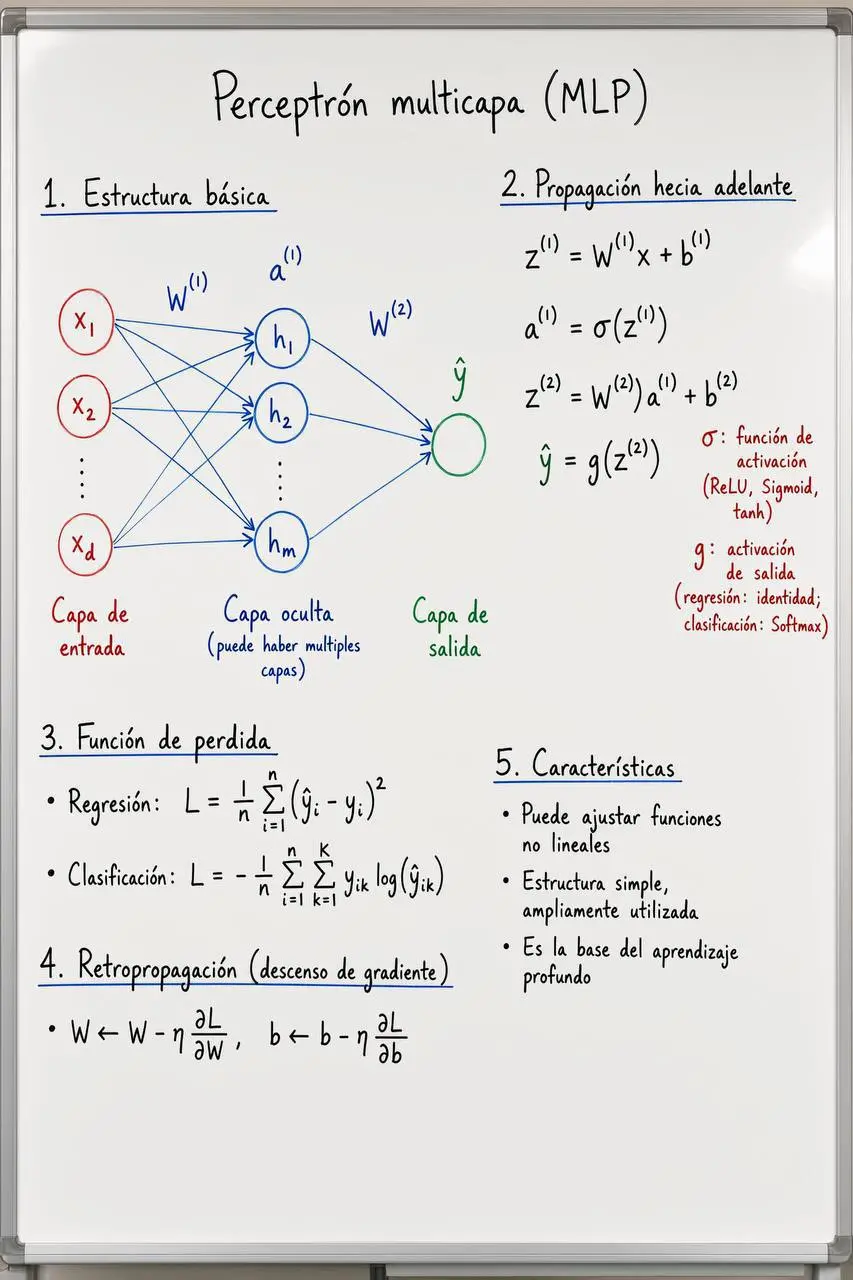 Perceptrón multicapa (MLP)
1. Estructura básica
W⁽¹⁾
a⁽¹⁾
W⁽²⁾
x₁
x₂
⋮
x_d
h₁
h₂
⋮
h_m
ŷ
Capa de
entrada
Capa oculta
(puede haber multiples
capas)
Capa de
salida
2. Propagación hecia adelante
z⁽¹⁾ = W⁽¹⁾x + b⁽¹⁾
a⁽¹⁾ = σ(z⁽¹⁾)
z⁽²⁾ = W⁽²⁾)a⁽¹⁾ + b⁽²⁾
ŷ = g(z⁽²⁾)
σ: función de
activación
(ReLU, Sigmoid,
tanh)
g: activación
de salida
(regresión: identidad;
clasificación: Softmax)
3. Función de perdida
• Regresión: L = 1/n Σ_{i=1}^{n} (ŷᵢ - yᵢ)²
• Clasificación: L = - 1/n Σ_{i=1}^{n} Σ_{k=1}^{K} y_{ik} log(ŷ_{ik})
4. Retropropagación (descenso de gradiente)
• W ← W - η ∂L/∂W , b ← b - η ∂L/∂b
5. Características
• Puede ajustar funciones
no lineales
• Estructura simple,
ampliamente utilizada
• Es la base del aprendizaje
profundo